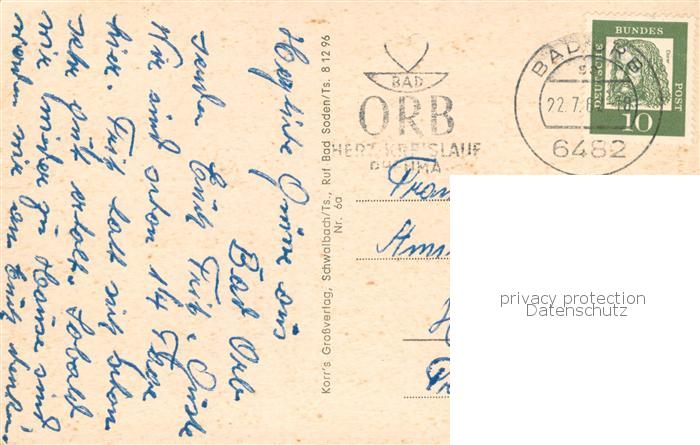 Herzliche Grüsse aus
Bad Orb
senden Euch Fritz. Gustl
Wir sind schon 14 Tage
hier. Fritz hat sich schon
sehr gut erholt. Sobald
wir wieder zu Hause sind
werden wir an Euch denken.
Korr's Großverlag, Schwalbach/Ts., Ruf Bad Soden/Ts. 8 12 96
Nr. 6a
BAD
ORB
HERZ KREISLAUF
RHEUMA
BAD ORB
22.7.6
6482
DEUTSCHE BUNDES POST
Dürer
10
privacy protection
Datenschutz